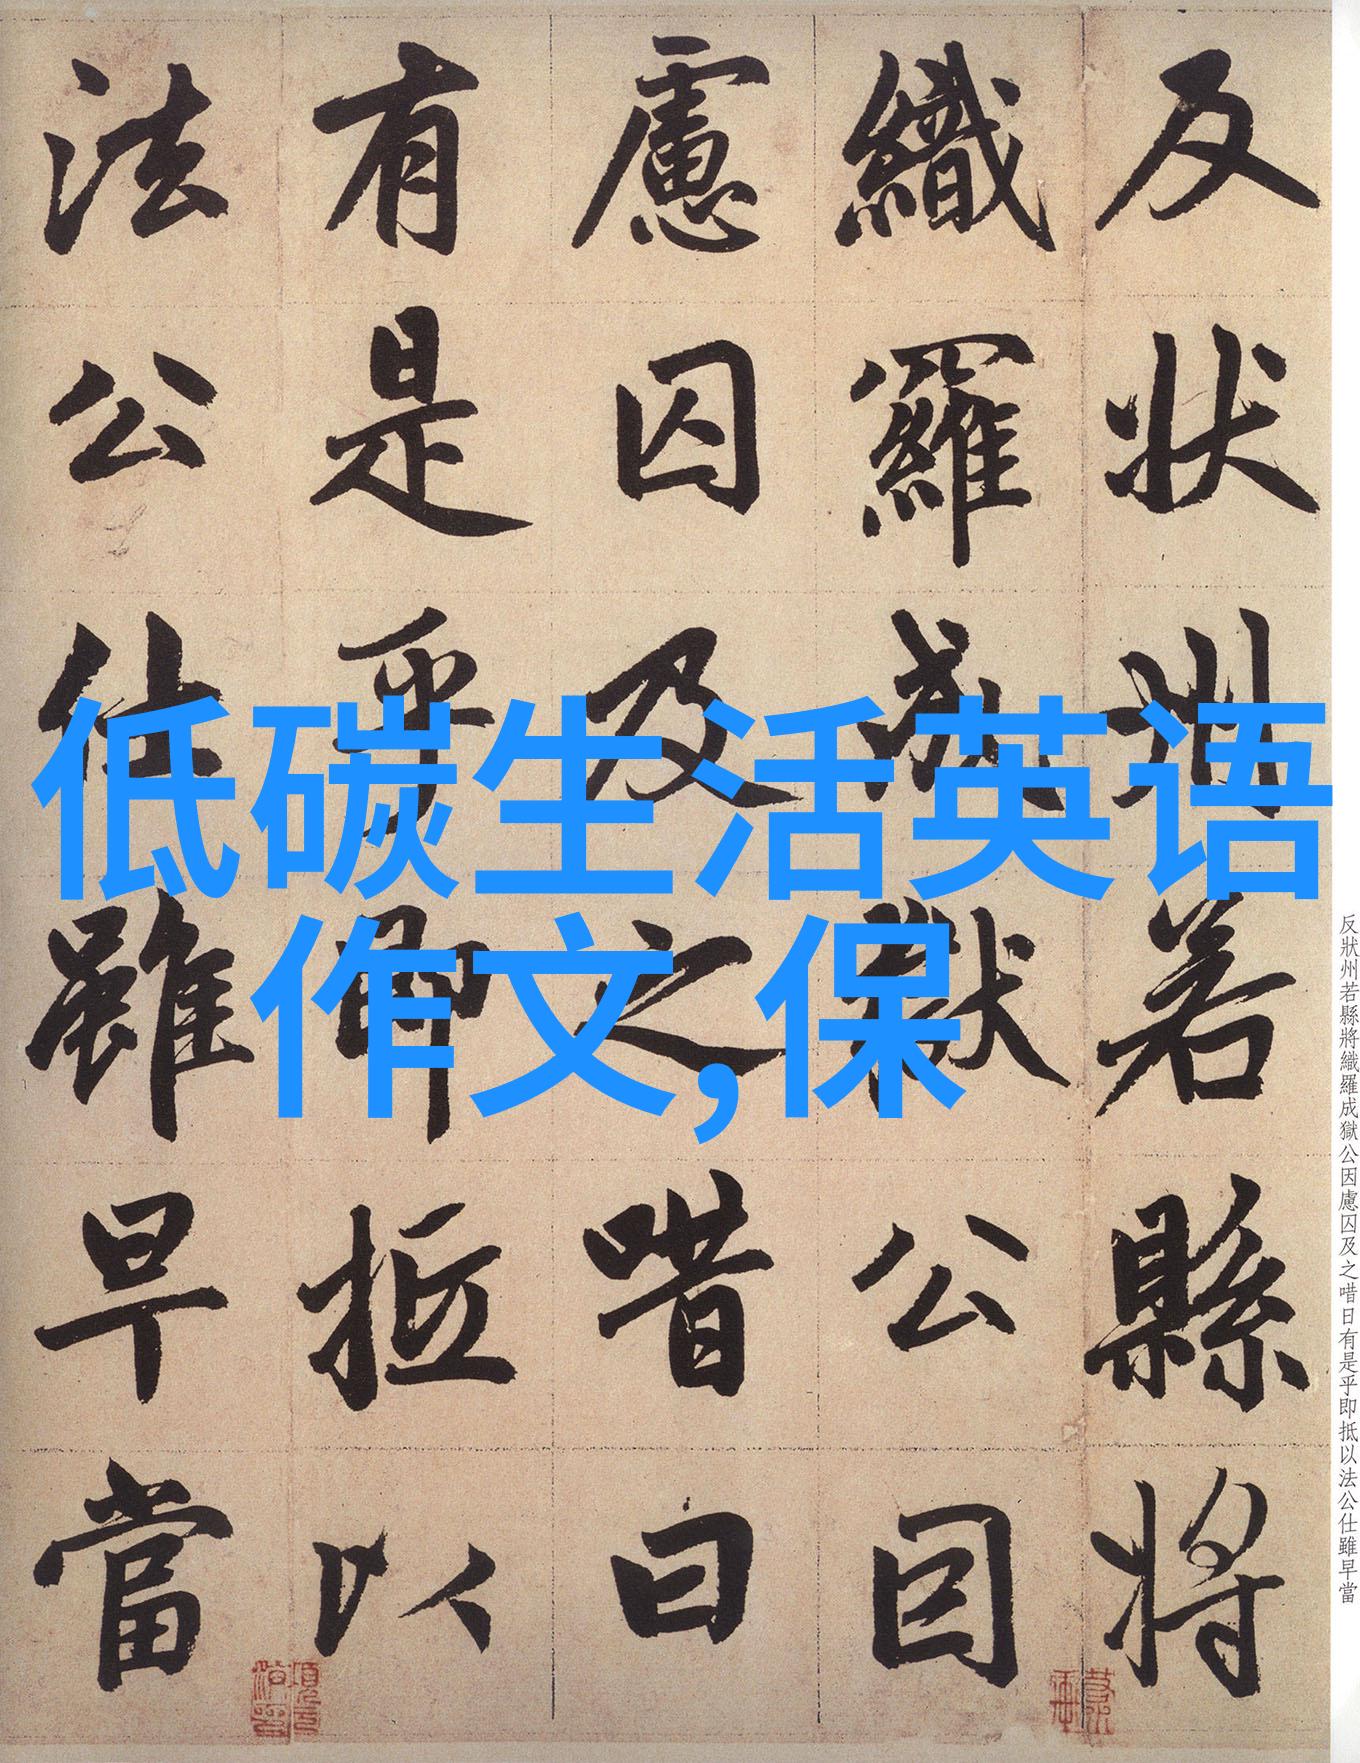 反状州若縣将
織羅成獄公因
慮囚及之唶曰
有是乎即抵以
法公仕雖早當
低碳生活英语
作文,保
反狀州若縣將織羅成獄公因慮囚及之唶日有是乎即抵以法公仕雖早當